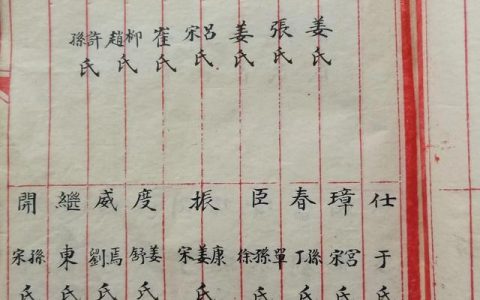 姜氏
張氏
姜氏
呂宋氏
崔氏
柳趙氏
許孫氏
仕于氏
璋宮宋氏
春孫丁氏
臣單孫徐氏
振康姜宋氏
度姜舒氏
威焉劉氏
繼東氏
開孫宋氏